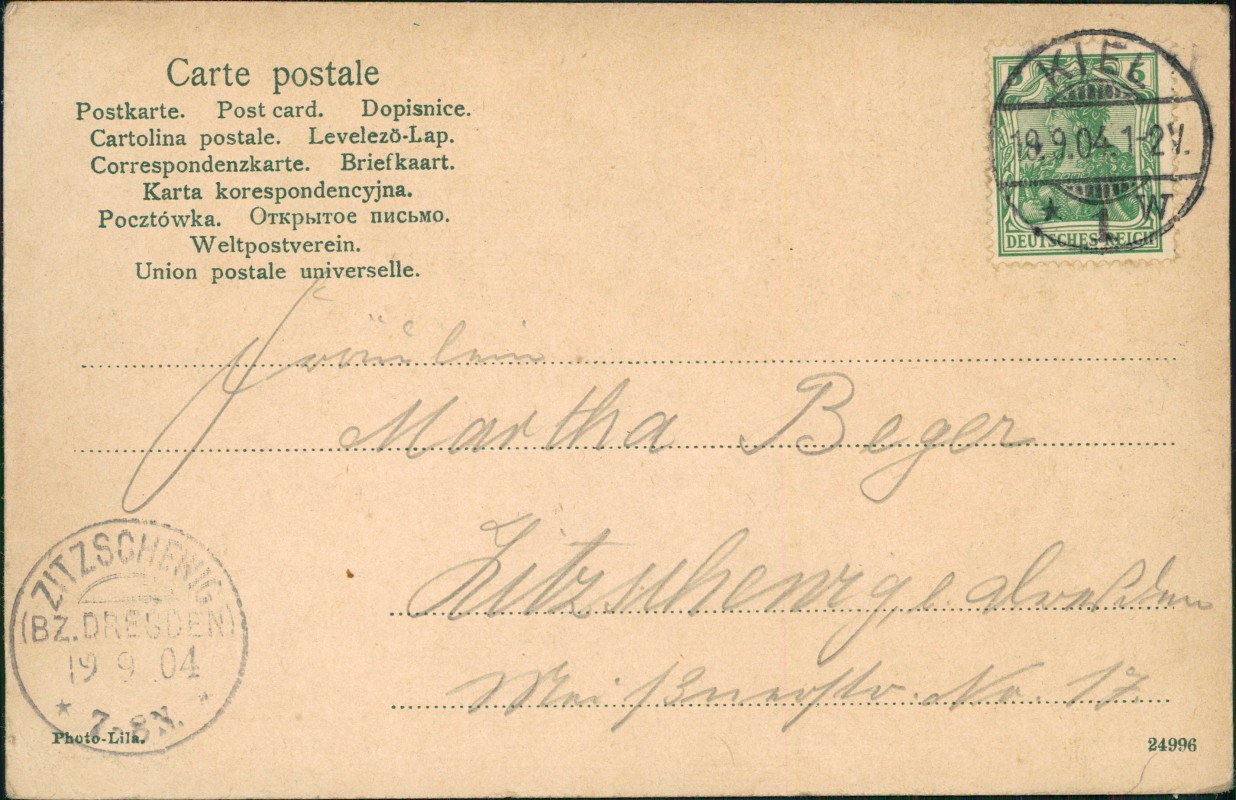 Carte postale
Postkarte. Post card. Dopisnice.
Cartolina postale. Levelező-Lap.
Correspondenzkarte. Briefkaart.
Karta korespondencyjna.
Pocztówka. Открытое письмо.
Weltpostverein.
Union postale universelle.
5 5
KIEL
18.9.04.1-2V.
* 1 W
DEUTSCHES REICH
Fräulein
Martha Beger
Zitzschewig
Meißnerstr. No. 17
ZITZSCHEWIG
(BZ.DRESDEN)
19 9 04
* 7-8N. *
Photo-Lila.
24996